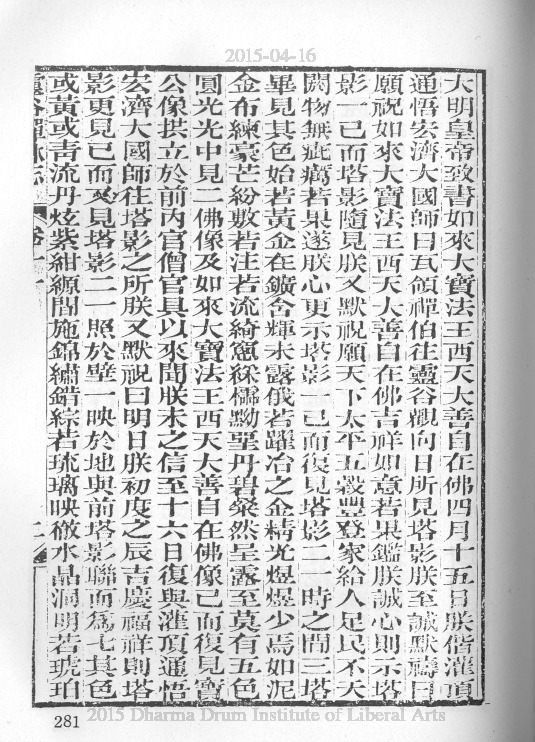 2015-04-16
大明皇帝致書如來大寶法王西天大善自在佛四月十五日朕偕灌頂
通悟宏濟大國師曰瓦領禪伯往靈谷觀向日所見塔影朕至誠默禱曰
願祝如來大寶法王西天大善自在佛吉祥如意若果鑑朕誠心則示塔
影一已而塔影隨見朕又默祝願天下太平五穀豐登家給人足民不夭
閼物無疵癘若果遂朕心更示塔影一已而復見塔影二一時之間三塔
畢見其色始若黃金在鑛含輝未露俄若躍冶之金精光煜煜少焉如泥
金布練豪芒紛敷若注若流綺窻綵櫺黝堊丹碧粲然呈露至莫有五色
圓光光中見二佛像及如來大寶法王西天大善自在佛像已而復見寶
公像拱立於前内官僧官具以來聞朕未之信至十六日復與灌頂通悟
宏濟大國師往塔影之所朕又默祝曰明日朕初度之辰吉慶福祥則塔
影更見已而又見塔影二一照於壁一映於地與前塔影聯而為七其色
或黃或青流丹炫紫紺縹間施錦繡錯綜若琉璃映徹水晶洞明若琥珀
281
2015 Dharma Drum Institute of Liberal Arts